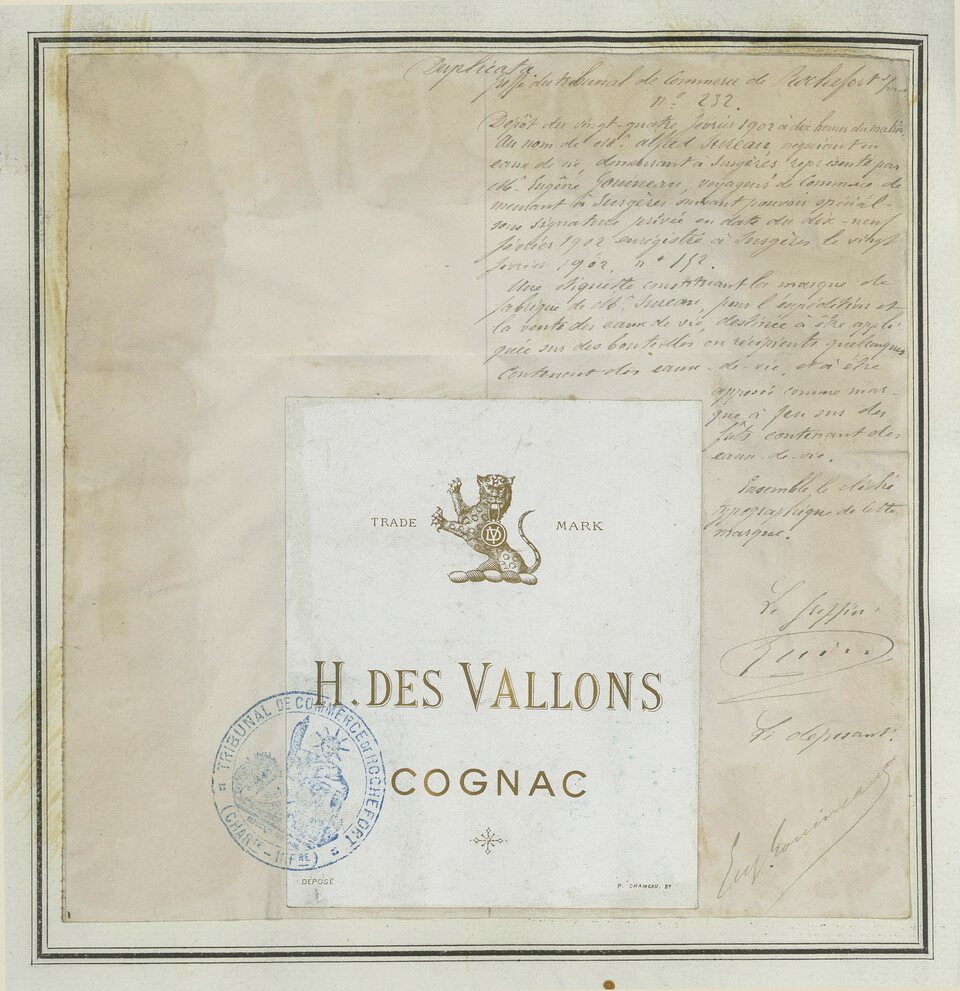 Duplicata
Greffe du tribunal de Commerce de Rochefort s/mer
n° 232.
Dépôt du vingt-quatre février 1902 à dix heures du matin
Au nom de Mr. Alfred Sureau, négociant en
eaux de vie, demeurant à Surgères représenté par
Mr. Eugène Gouineau, voyageur de Commerce de
meurant à Surgères suivant pouvoir spécial
sous signature privée en date du dix-neuf
février 1902 enregistré à Surgères le vingt
février 1902, n° 152.
Une étiquette constituant la marque de
fabrique de Mr. Sureau, pour l'expédition et
la vente des eaux de vie, destinée à être appli
quée sur des bouteilles ou récipients quelconques
contenant des eaux-de-vie, et à être
apposée comme mar-
que à feu sur des
fûts contenant des
eaux-de-vie.
Ensemble le cliché
typographique de cette
marque.
Le greffier:
Le déposant:
Eug. Gouineau
TRADE MARK
VD
H. DES VALLONS
COGNAC
DÉPOSÉ
P. CHAMEAU. BX
TRIBUNAL DE COMMERCE DE ROCHEFORT
(CHARTE-INFRE)